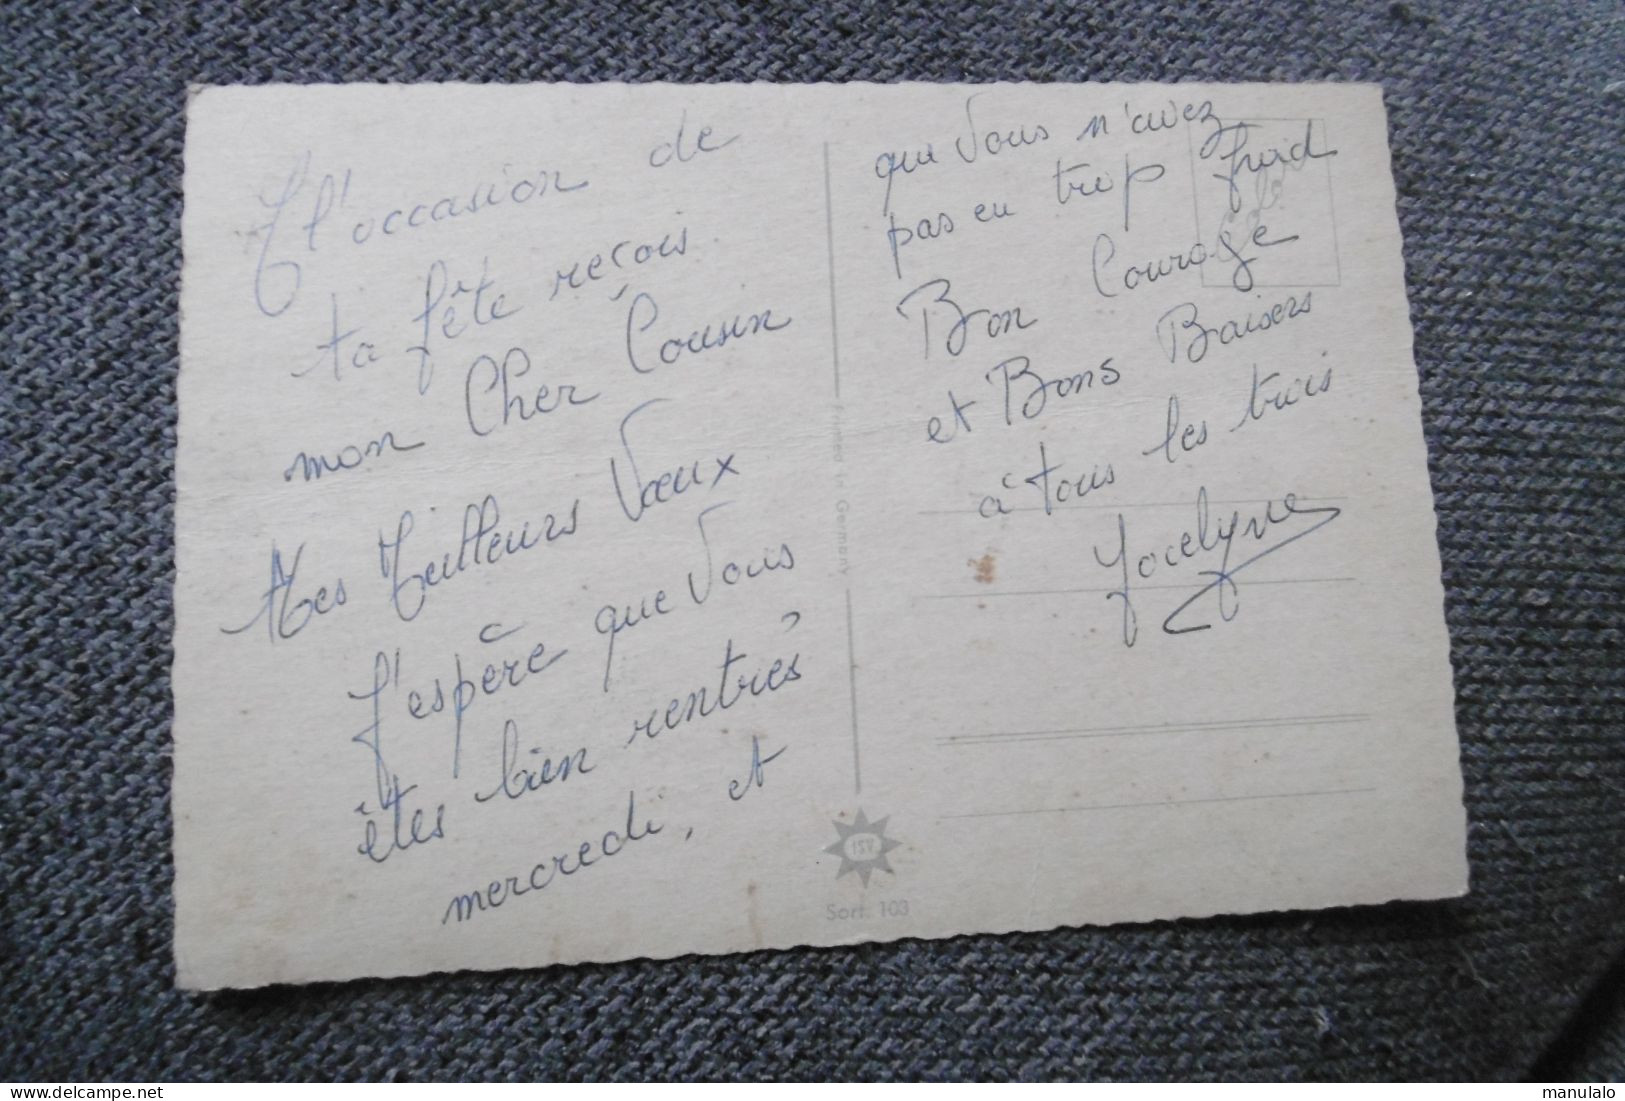 A l'occasion de
ta fête reçois
mon Cher Cousin
Mes Meilleurs Vœux
J'espère que Vous
êtes bien rentrés
mercredi, et
que Vous n'avez
pas eu trop froid
Bon Courage
et Bons Baisers
à tous les trois
Jocelyne
Printed in Germany
Sort. 103
www.delcampe.net
manulalo